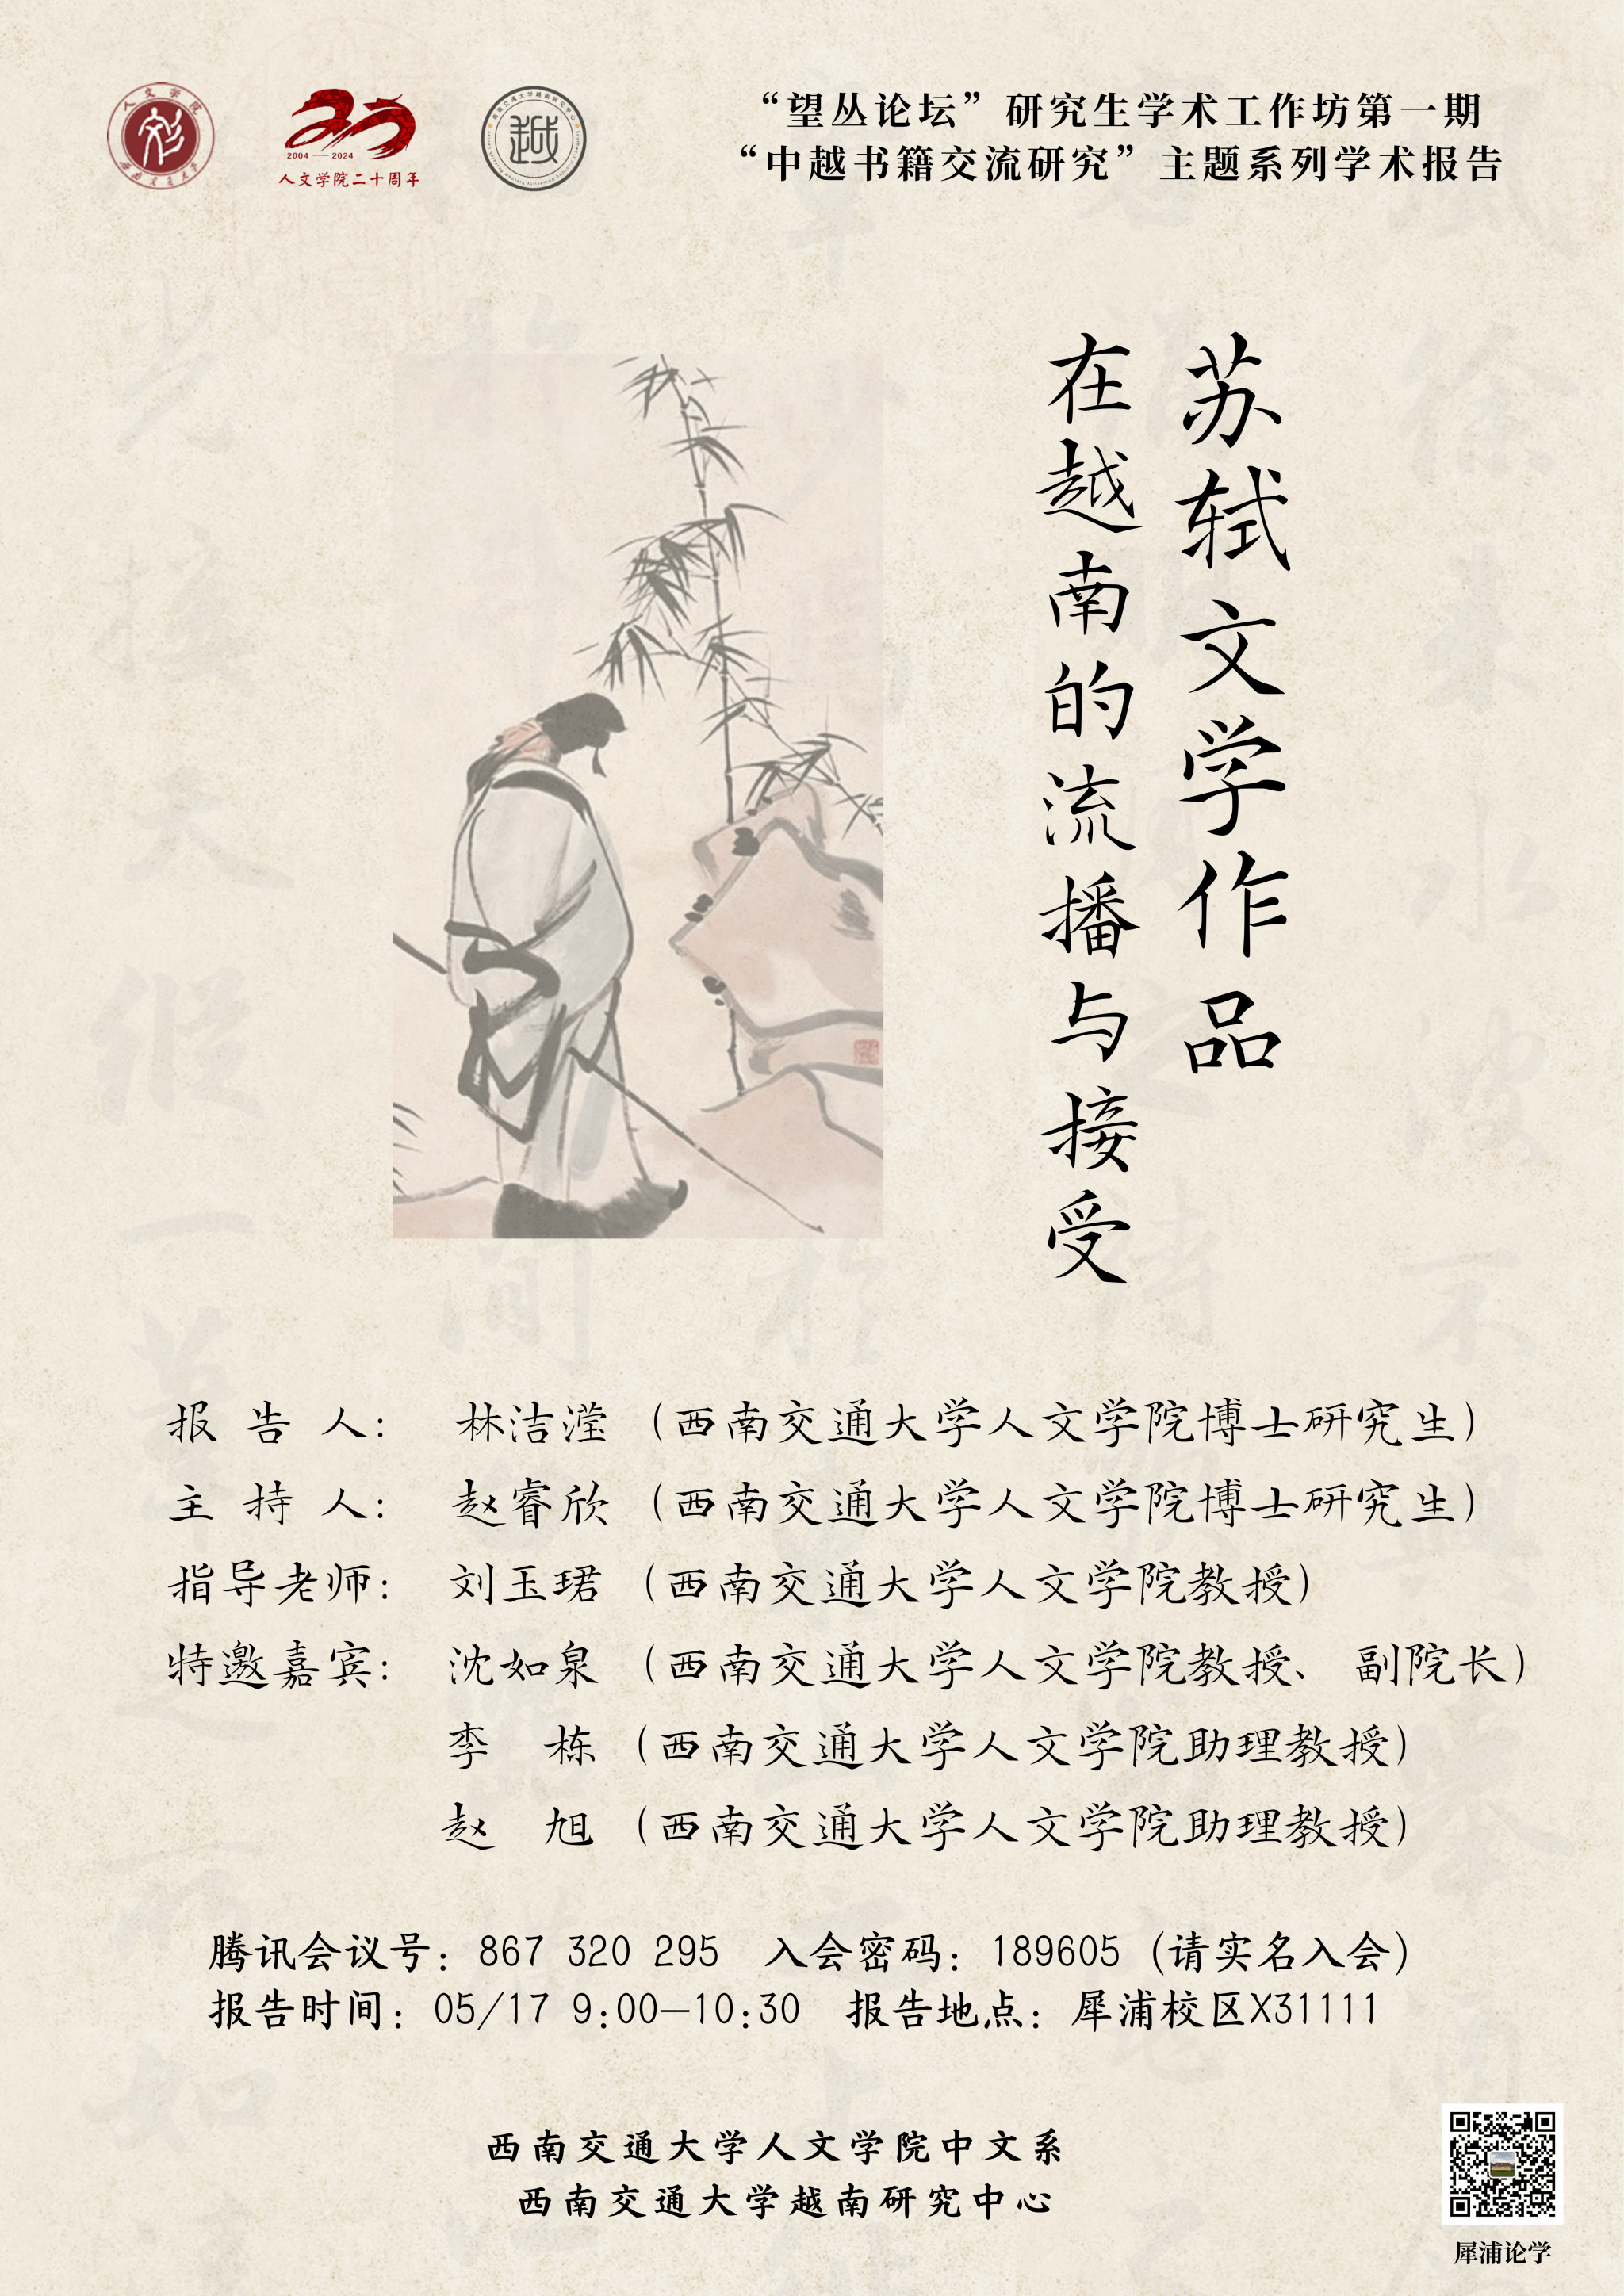 人文学院
西南交通大学
2004 — 2024
人文学院二十周年
西南交通大学越南研究中心
越
“望丛论坛”研究生学术工作坊第一期
“中越书籍交流研究”主题系列学术报告
苏轼文学作品
在越南的流播与接受
报告人: 林洁滢（西南交通大学人文学院博士研究生）
主持人: 赵睿欣（西南交通大学人文学院博士研究生）
指导老师: 刘玉珺（西南交通大学人文学院教授）
特邀嘉宾: 沈如泉（西南交通大学人文学院教授、副院长）
李 栋（西南交通大学人文学院助理教授）
赵 旭（西南交通大学人文学院助理教授）
腾讯会议号: 867 320 295 入会密码: 189605（请实名入会）
报告时间: 05/17 9:00—10:30 报告地点: 犀浦校区X31111
西南交通大学人文学院中文系
西南交通大学越南研究中心
犀浦论学